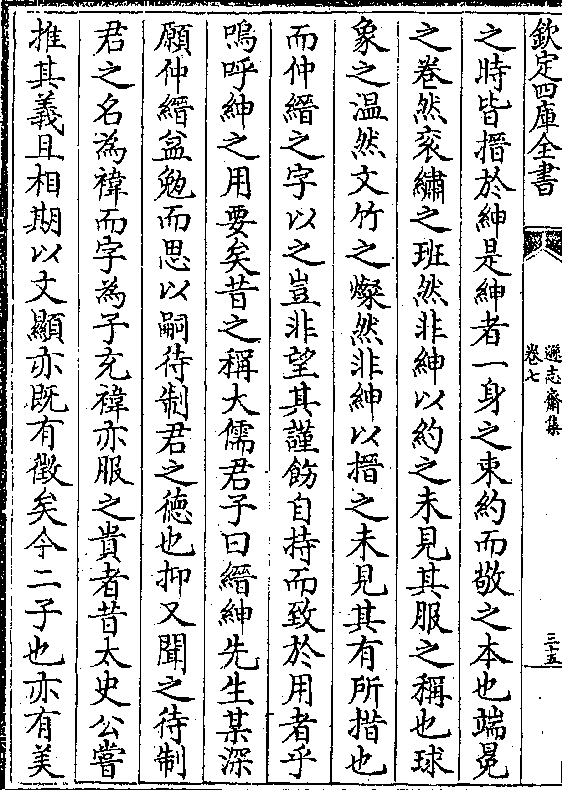 欽定四庫全書
遜志齋集
卷七
三十五
之時皆搢於紳是紳者一身之束約而敬之本也端冕
之卷然衮繡之班然非紳以約之未見其服之稱也球
象之温然文竹之燦然非紳以搢之未見其有所措也
而仲縉之字以之豈非望其謹飭自持而致於用者乎
嗚呼紳之用要矣昔之稱大儒君子曰縉紳先生某深
願仲縉益勉而思以嗣待制君之德也抑又聞之待制
君之名為禕而字為子充禕亦服之貴者昔太史公嘗
推其義且相期以文顯亦既有徵矣今二子也亦有美